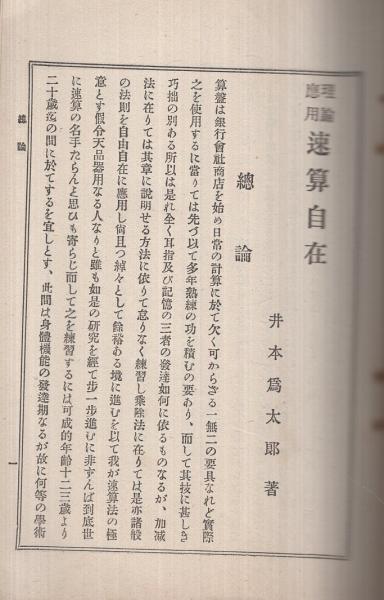 理論
應用
速算自在
井本爲太郎著
總論
算盤は銀行會社商店を始め日常の計算に於て欠く可からざる一無二の要具なれど實際
之を使用するに當りては先づ以て多年熟練の功を積むの要あり、而して其技に甚しき
巧拙の別ある所以は是れ全く耳指及び記憶の三者の發達如何に依るものなるが、加減
法に在りては其章に説明せる方法に依りて怠りなく練習し乘除法に在りては是亦諸般
の法則を自由自在に應用し尙且つ綽々として餘裕ある境に進むを以て我が速算法の極
意とす假令天品器用なる人なりと雖も如是の研究を經て步一步進むに非ずんば到底世
に速算の名手たらんと思ひも寄らじ而して之を練習するには可成的年齡十二三歲より
二十歲迄の間に於てするを宜しとす、此間は身體機能の發達期なるが故に何等の學術
總論
一